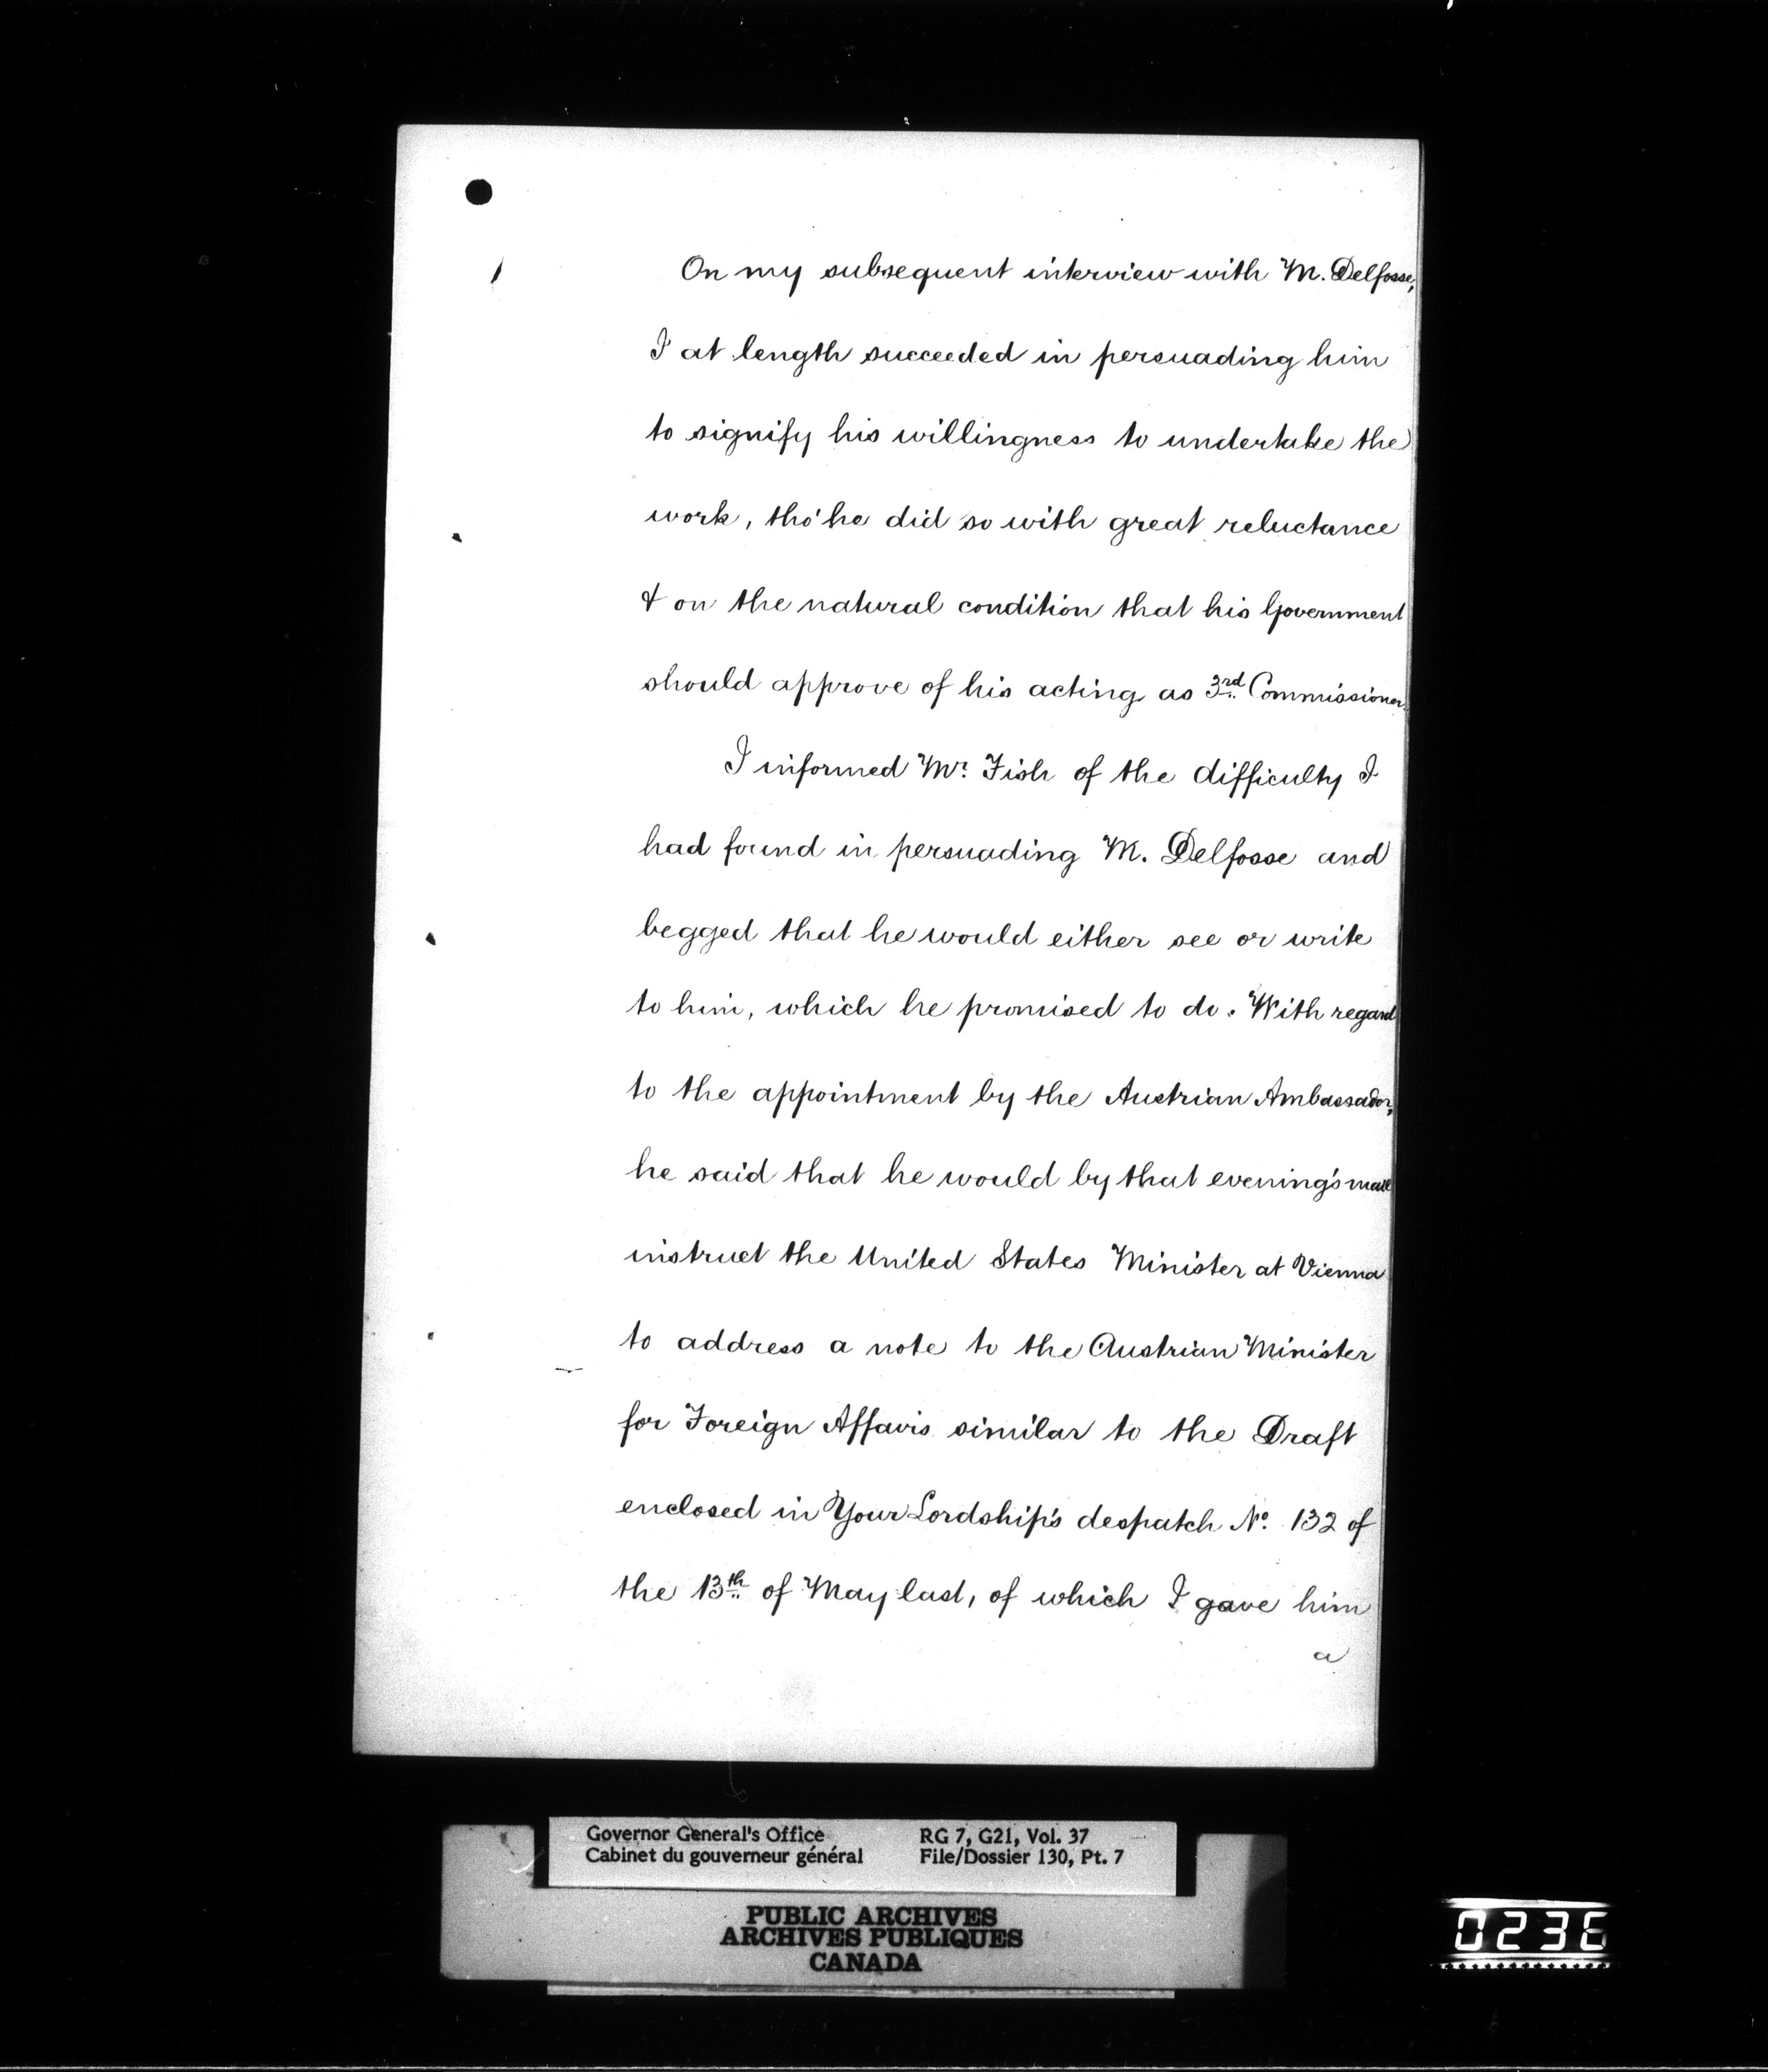 On my subsequent interview with M. Delfosse,
I at length succeeded in persuading him
to signify his willingness to undertake the
work, tho' he did so with great reluctance
& on the natural condition that his Government
should approve of his acting as 3rd Commissioner.
I informed Mr. Fish of the difficulty I
had found in persuading M. Delfosse and
begged that he would either see or write
to him, which he promised to do. With regard
to the appointment by the Austrian Ambassador,
he said that he would by that evening's mail
instruct the United States Minister at Vienna
to address a note to the Austrian Minister
for Foreign Affairs similar to the Draft
enclosed in Your Lordship's despatch No. 132 of
the 13th of May last, of which I gave him
a
Governor General's Office RG 7, G21, Vol. 37
Cabinet du gouverneur général File/Dossier 130, Pt. 7
PUBLIC ARCHIVES
ARCHIVES PUBLIQUES
CANADA
0236